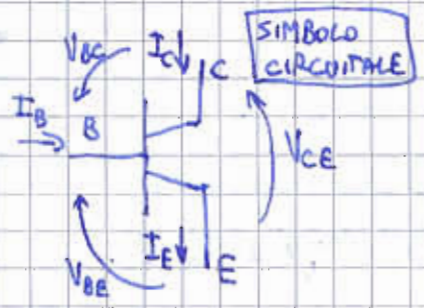 SIMBOLO
CIRCUITALE
VBC
IC
C
IB
B
VCE
IE
E
VBE